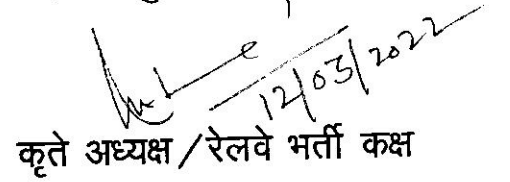 12/03/2022
कृते अध्यक्ष/रेलवे भर्ती कक्ष